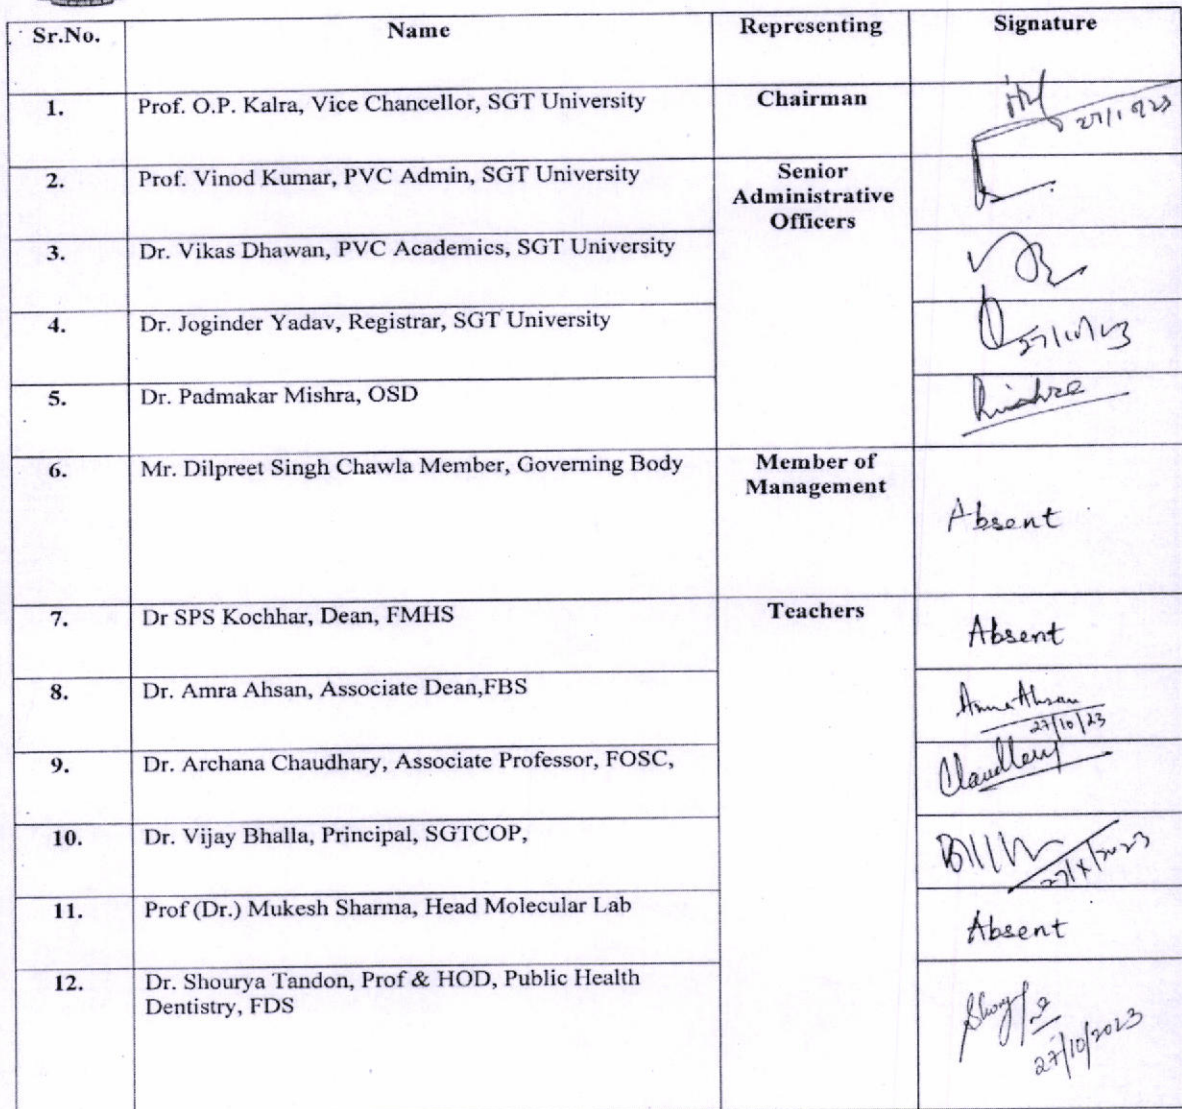 Sr.No. Name Representing Signature
1. Prof. O.P. Kalra, Vice Chancellor, SGT University Chairman
2. Prof. Vinod Kumar, PVC Admin, SGT University Senior
Administrative
Officers
3. Dr. Vikas Dhawan, PVC Academics, SGT University
4. Dr. Joginder Yadav, Registrar, SGT University 27/10/23
5. Dr. Padmakar Mishra, OSD
6. Mr. Dilpreet Singh Chawla Member, Governing Body Member of
Management
Absent
7. Dr SPS Kochhar, Dean, FMHS Teachers Absent
8. Dr. Amra Ahsan, Associate Dean,FBS Amra Ahsan
27/10/23
9. Dr. Archana Chaudhary, Associate Professor, FOSC, Chaudhary
10. Dr. Vijay Bhalla, Principal, SGTCOP,
27/X/2023
11. Prof (Dr.) Mukesh Sharma, Head Molecular Lab Absent
12. Dr. Shourya Tandon, Prof & HOD, Public Health
Dentistry, FDS
27/10/2023